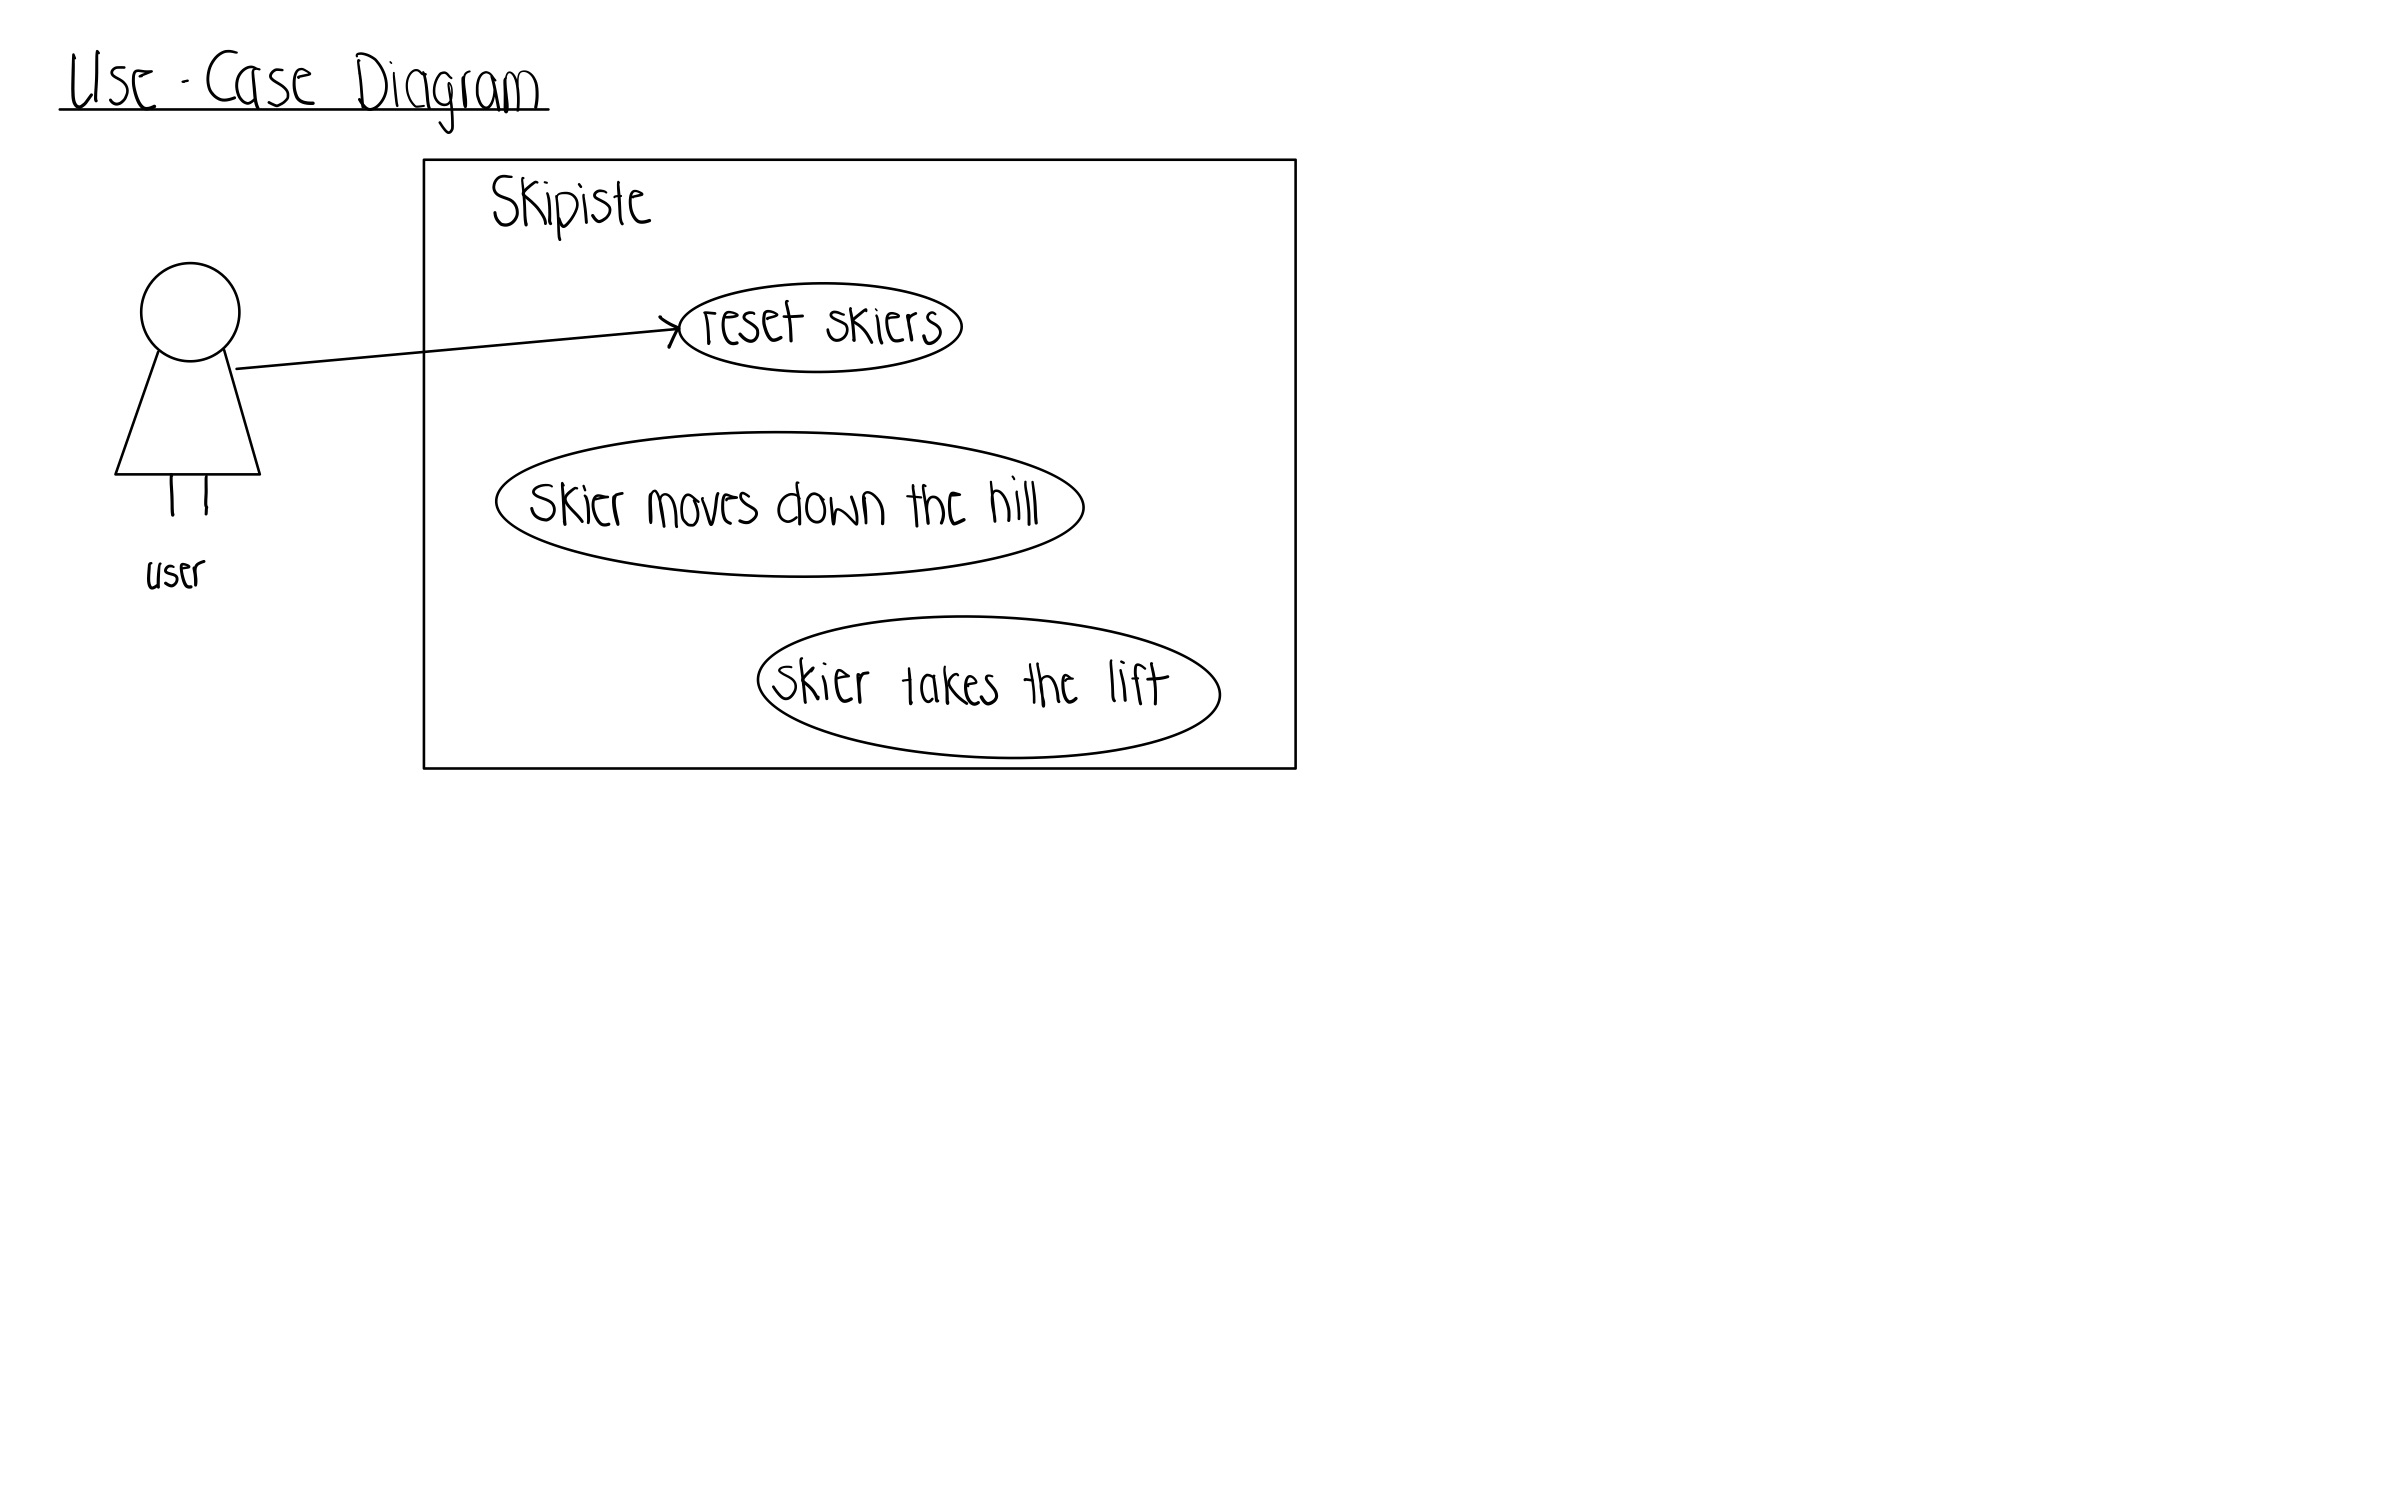 Use-Case Diagram
Skipiste
reset skiers
Skier moves down the hill
user
skier takes the lift